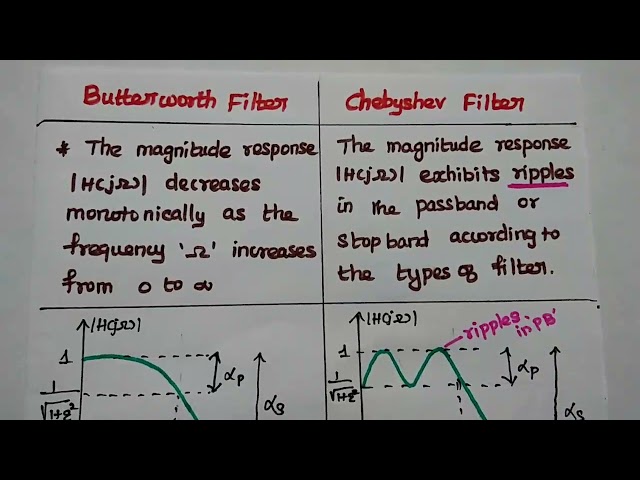 Butterworth Filter
Chebyshev Filter
* The magnitude response
|H(jΩ)| decreases
monotonically as the
frequency 'Ω' increases
from 0 to ∞
The magnitude response
|H(jΩ)| exhibits ripples
in the passband or
stopband according to
the types of filter.
|H(jΩ)|
1
1/√1+ε²
αp
αs
|H(jΩ)|
ripples in 'PB'
1
1/√1+ε²
αp
αs